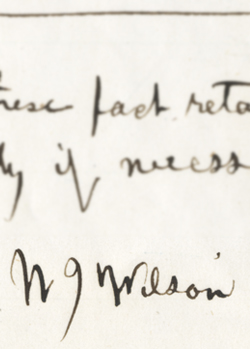 these fact reta
ly if necess
W J Wilson